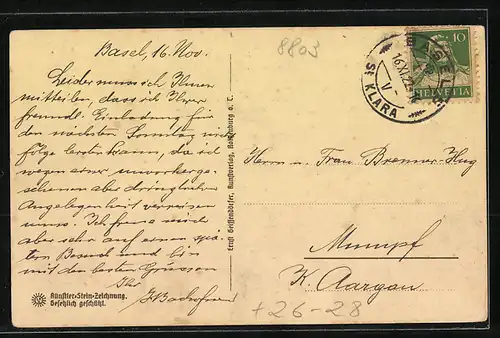 Basel, 16. Nov.
Leider muss ich Ihnen
mitteilen, dass ich Ihrer
freundl. Einladung für
den nächsten Sonntag nicht
folge leisten kann, da ich
wegen einer unvorherge-
sehenen aber dringlichen
Angelegenheit verreisen
muss. Ich freue mich
aber sehr auf einen spä-
tern Besuch und bin
mit den besten Grüssen
Ihr
Künstler-Stein-Zeichnung.
Gesetzlich geschützt.
Ernst Geissendörfer, Kunstverlag, Rothenburg o. T.
8803
10
HELVETIA
BASEL
16.XI.
V
ST. KLARA
Herrn u. Frau Bremer-Hug
Mumpf
K. Aargau
+26-28